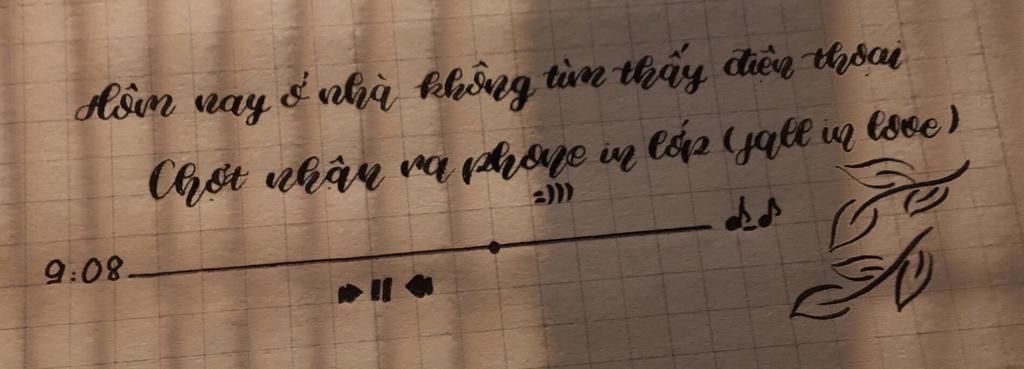 Hôm nay ở nhà không tìm thấy điện thoại
Chợt nhận ra phone in lớp (fall in love)
=)))
9:08